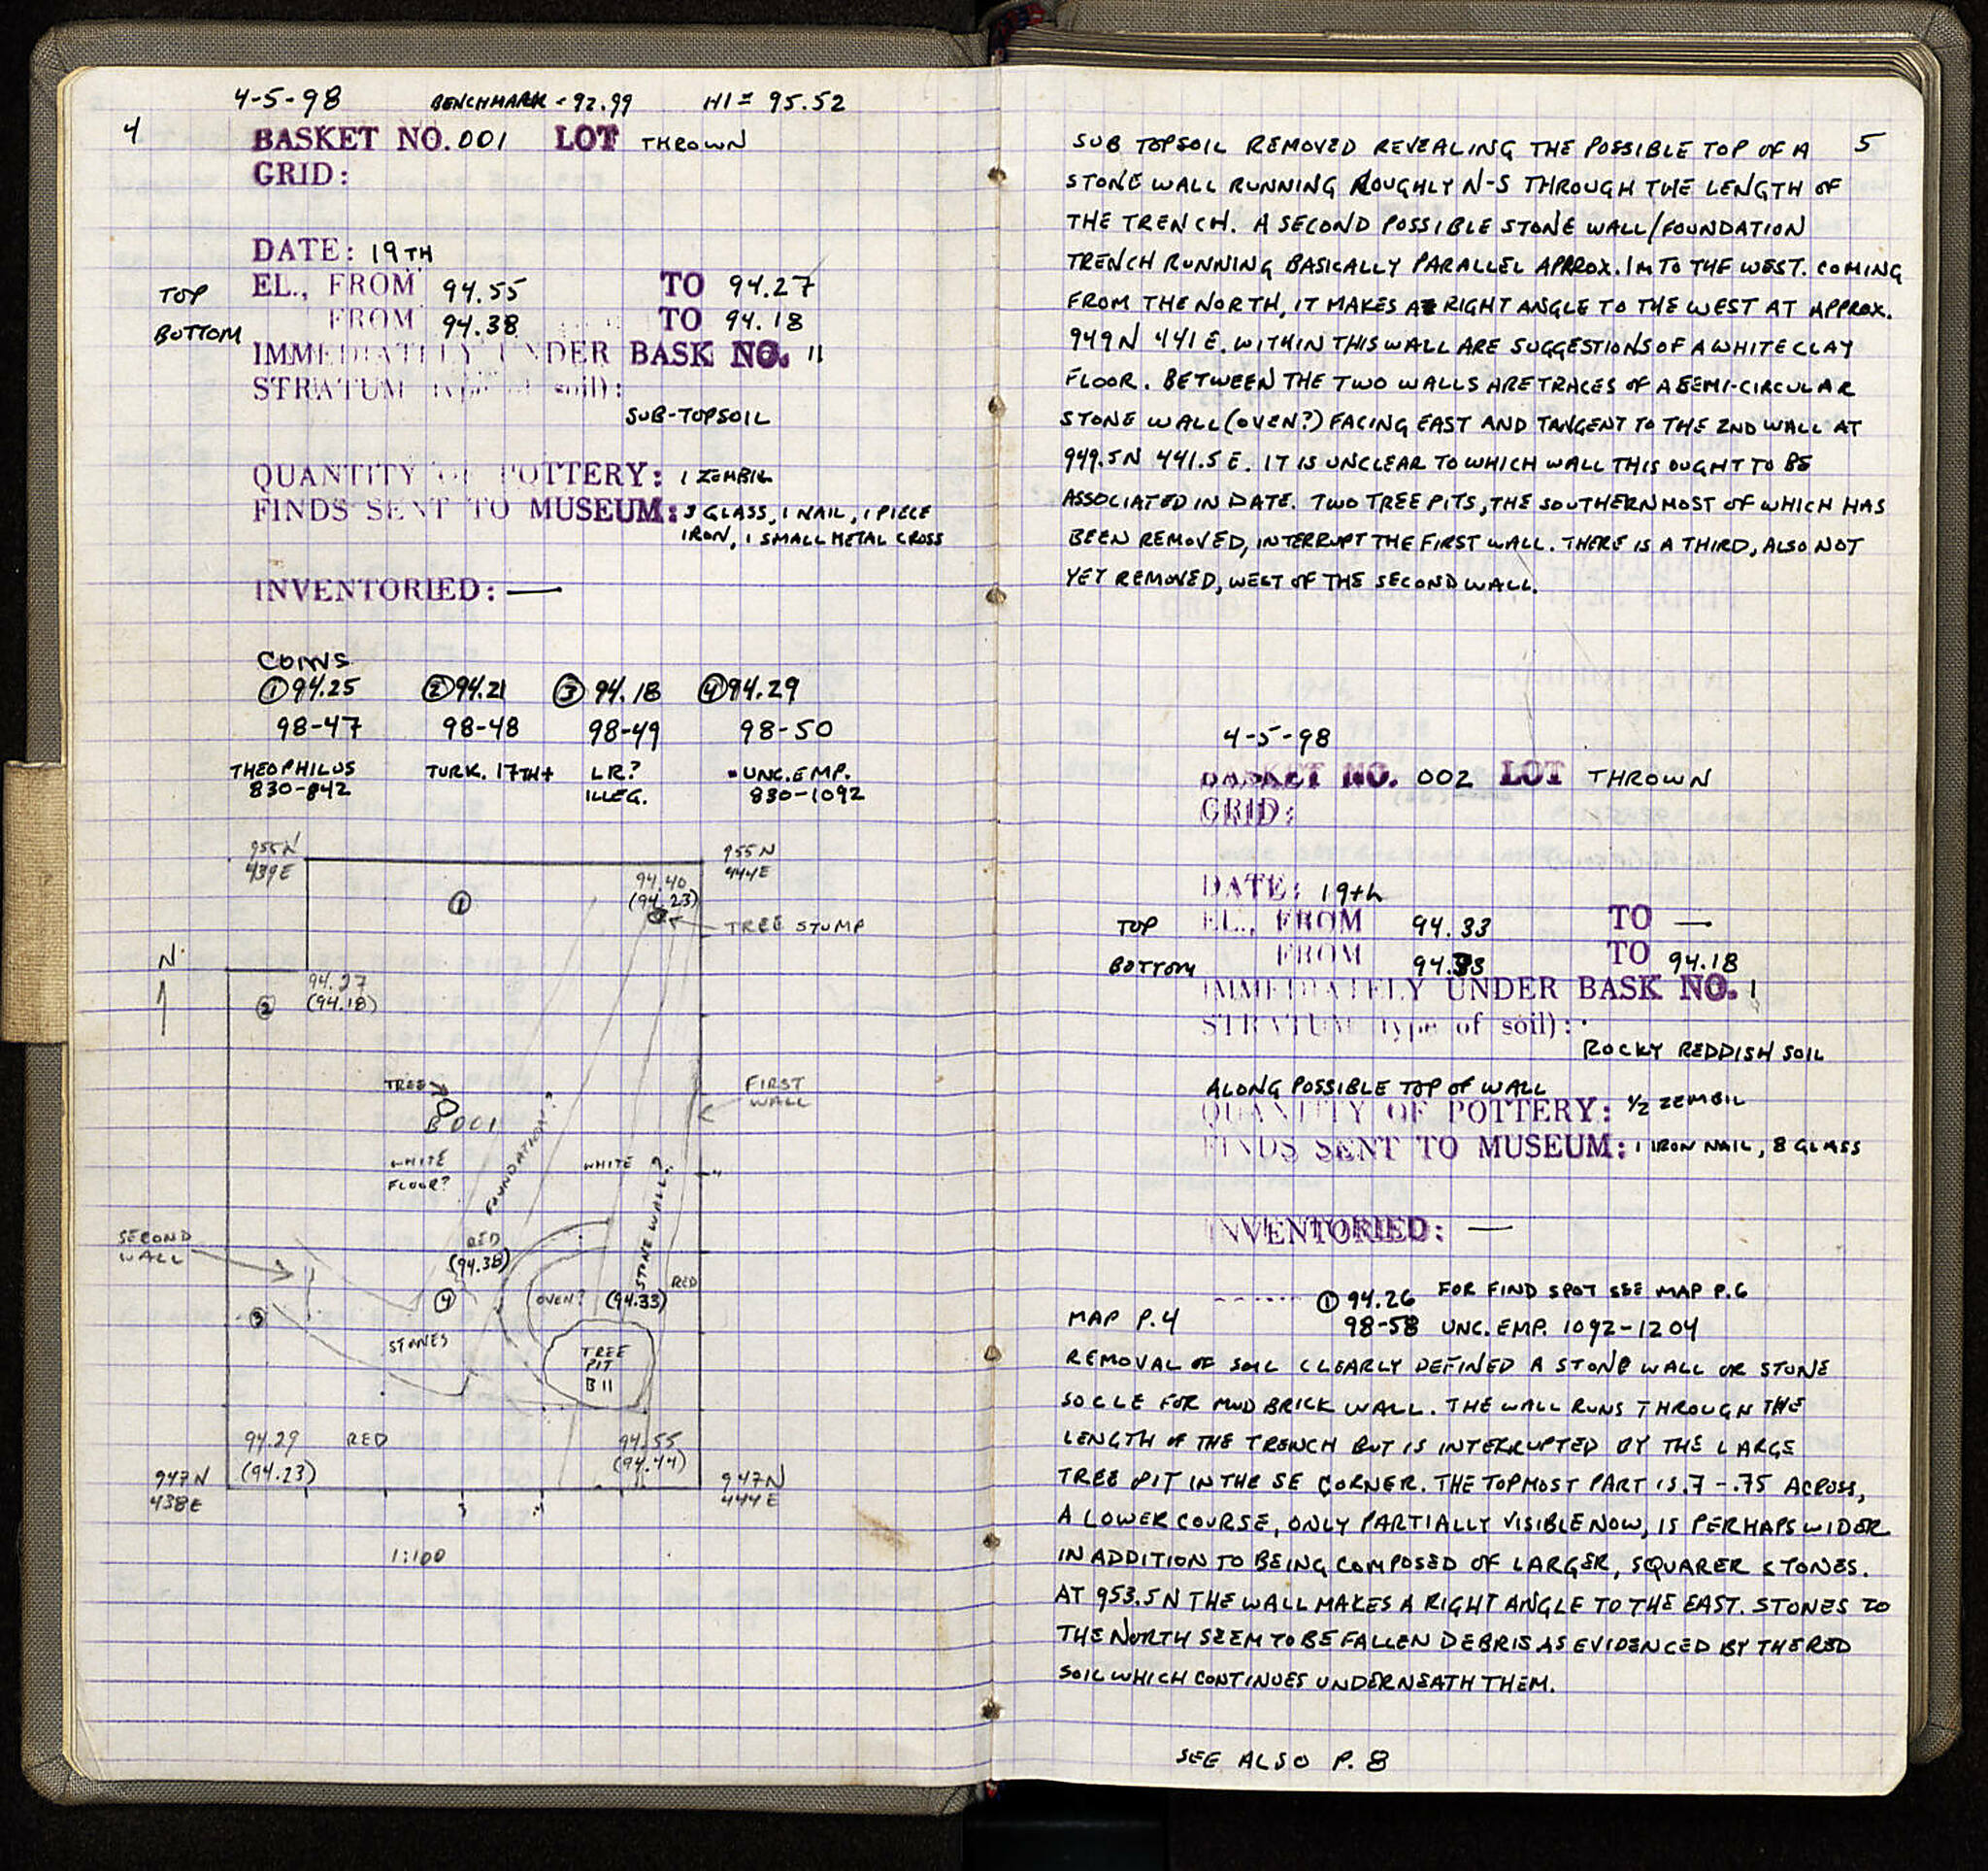 4-5-98 BENCHMARK = 92.99 HI = 95.52
4
BASKET NO. 001 LOT THROWN
GRID:
DATE: 19TH
TOP EL., FROM 94.55 TO 94.27
BOTTOM FROM 94.38 TO 94.18
IMMEDIATELY UNDER BASK NO. 11
STRATUM type of soil):
SUB-TOPSOIL
QUANTITY OF POTTERY: 1 ZEMBIL
FINDS SENT TO MUSEUM: 3 GLASS, 1 NAIL, 1 PIECE
IRON, 1 SMALL METAL CROSS
INVENTORIED: —
COINS
① 94.25 ② 94.21 ③ 94.18 ④ 94.29
98-47 98-48 98-49 98-50
THEOPHILUS TURK. 17TH+ LR? UNC. EMP.
830-842 ILLEG. 830-1092
955N 955N
439E 444E
94.40
① (94.23)
TREE STUMP
N
94.27
② (94.18)
TREE
B 001
FIRST
WALL
FOUNDATION?
WHITE WHITE
FLOOR?
STONE WALL?
SECOND
WALL
RED
(94.38)
RED
④ OVEN? (94.33)
③
STONES
TREE
PIT
B 11
94.29 RED 94.55
(94.23) (94.44)
947N 947N
438E 444E
1:100
SUB TOPSOIL REMOVED REVEALING THE POSSIBLE TOP OF A 5
STONE WALL RUNNING ROUGHLY N-S THROUGH THE LENGTH OF
THE TRENCH. A SECOND POSSIBLE STONE WALL/FOUNDATION
TRENCH RUNNING BASICALLY PARALLEL APPROX. 1M TO THE WEST. COMING
FROM THE NORTH, IT MAKES A RIGHT ANGLE TO THE WEST AT APPROX.
949N 441E. WITHIN THIS WALL ARE SUGGESTIONS OF A WHITE CLAY
FLOOR. BETWEEN THE TWO WALLS ARE TRACES OF A SEMI-CIRCULAR
STONE WALL (OVEN?) FACING EAST AND TANGENT TO THE 2ND WALL AT
949.5N 441.5E. IT IS UNCLEAR TO WHICH WALL THIS OUGHT TO BE
ASSOCIATED IN DATE. TWO TREE PITS, THE SOUTHERNMOST OF WHICH HAS
BEEN REMOVED, INTERRUPT THE FIRST WALL. THERE IS A THIRD, ALSO NOT
YET REMOVED, WEST OF THE SECOND WALL.
4-5-98
BASKET NO. 002 LOT THROWN
GRID:
DATE: 19th
TOP EL., FROM 94.33 TO —
BOTTOM FROM 94.33 TO 94.18
IMMEDIATELY UNDER BASK NO. 1
STRATUM type of soil):
ROCKY REDDISH SOIL
ALONG POSSIBLE TOP OF WALL
QUANTITY OF POTTERY: 1/2 ZEMBIL
FINDS SENT TO MUSEUM: 1 IRON NAIL, 8 GLASS
INVENTORIED: —
① 94.26 FOR FIND SPOT SEE MAP P.6
MAP P.4 98-58 UNC. EMP. 1092-1204
REMOVAL OF SOIL CLEARLY DEFINED A STONE WALL OR STONE
SOCLE FOR MUD BRICK WALL. THE WALL RUNS THROUGH THE
LENGTH OF THE TRENCH BUT IS INTERRUPTED BY THE LARGE
TREE PIT IN THE SE CORNER. THE TOPMOST PART IS .7 - .75 ACROSS,
A LOWER COURSE, ONLY PARTIALLY VISIBLE NOW, IS PERHAPS WIDER
IN ADDITION TO BEING COMPOSED OF LARGER, SQUARER STONES.
AT 953.5N THE WALL MAKES A RIGHT ANGLE TO THE EAST. STONES TO
THE NORTH SEEM TO BE FALLEN DEBRIS AS EVIDENCED BY THE RED
SOIL WHICH CONTINUES UNDERNEATH THEM.
SEE ALSO P. 8